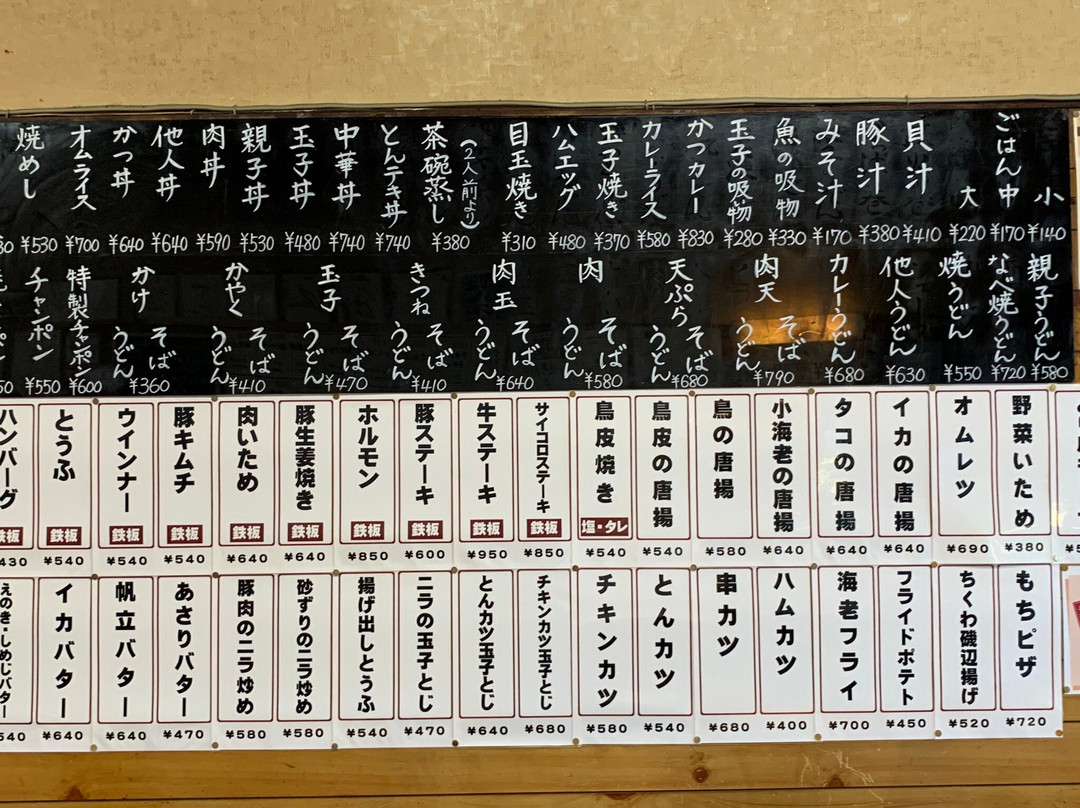 ごはん 小 ¥140
中 ¥170
大 ¥220
貝汁 ¥410
豚汁 ¥380
みそ汁 ¥170
魚の吸物 ¥330
玉子の吸物 ¥280
かつカレー ¥830
カレーライス ¥580
玉子焼き ¥370
ハムエッグ ¥480
目玉焼き ¥310
(2人前より)
茶碗蒸し ¥380
とんテキ丼 ¥740
中華丼 ¥740
玉子丼 ¥480
親子丼 ¥530
肉丼 ¥590
他人丼 ¥640
かつ丼 ¥640
オムライス ¥700
焼めし ¥530
親子うどん ¥580
なべ焼うどん ¥720
焼うどん ¥550
他人うどん ¥630
カレーうどん ¥680
肉天 そば うどん ¥790
天ぷら そば うどん ¥680
肉 そば うどん ¥580
肉玉 そば うどん ¥640
きつね そば うどん ¥410
玉子 そば うどん ¥470
かやく そば うどん ¥410
かけ そば うどん ¥360
特製チャンポン ¥600
チャンポン ¥550
野菜いため ¥380
オムレツ ¥690
イカの唐揚 ¥640
タコの唐揚 ¥640
小海老の唐揚 ¥640
鳥の唐揚 ¥580
鳥皮の唐揚 ¥540
鳥皮焼き 塩・タレ ¥540
サイコロステーキ 鉄板 ¥850
牛ステーキ 鉄板 ¥950
豚ステーキ 鉄板 ¥600
ホルモン 鉄板 ¥850
豚生姜焼き 鉄板 ¥640
肉いため 鉄板 ¥640
豚キムチ 鉄板 ¥540
ウインナー 鉄板 ¥540
とうふ 鉄板 ¥540
ハンバーグ 鉄板 430
もちピザ ¥720
ちくわ磯辺揚げ ¥520
フライドポテト ¥450
海老フライ ¥700
ハムカツ ¥400
串カツ ¥680
とんカツ ¥540
チキンカツ ¥580
チキンカツ玉子とじ ¥680
とんカツ玉子とじ ¥640
ニラの玉子とじ ¥470
揚げ出しとうふ ¥540
砂ずりのニラ炒め ¥580
豚肉のニラ炒め ¥580
あさりバター ¥470
帆立バター ¥640
イカバター ¥640
えのき・しめじバター 540